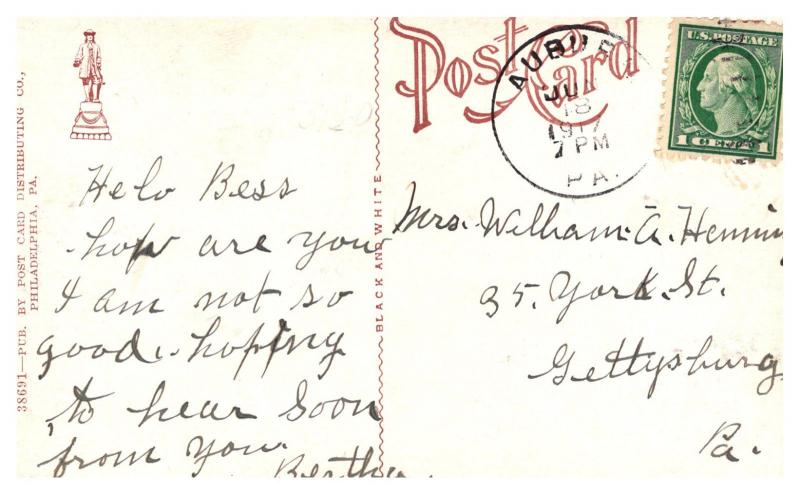 Post Card
AUBUR
JU
18
1917
7 PM
PA.
U.S. POSTAGE
1 CENT 1
38691—PUB. BY POST CARD DISTRIBUTING CO.,
PHILADELPHIA, PA.
BLACK AND WHITE
Helo Bess
how are you
I am not so
good. hoping
to hear soon
from you.
Bertha
Mrs. William. A. Henning
35. York. St.
Gettysburg
Pa.